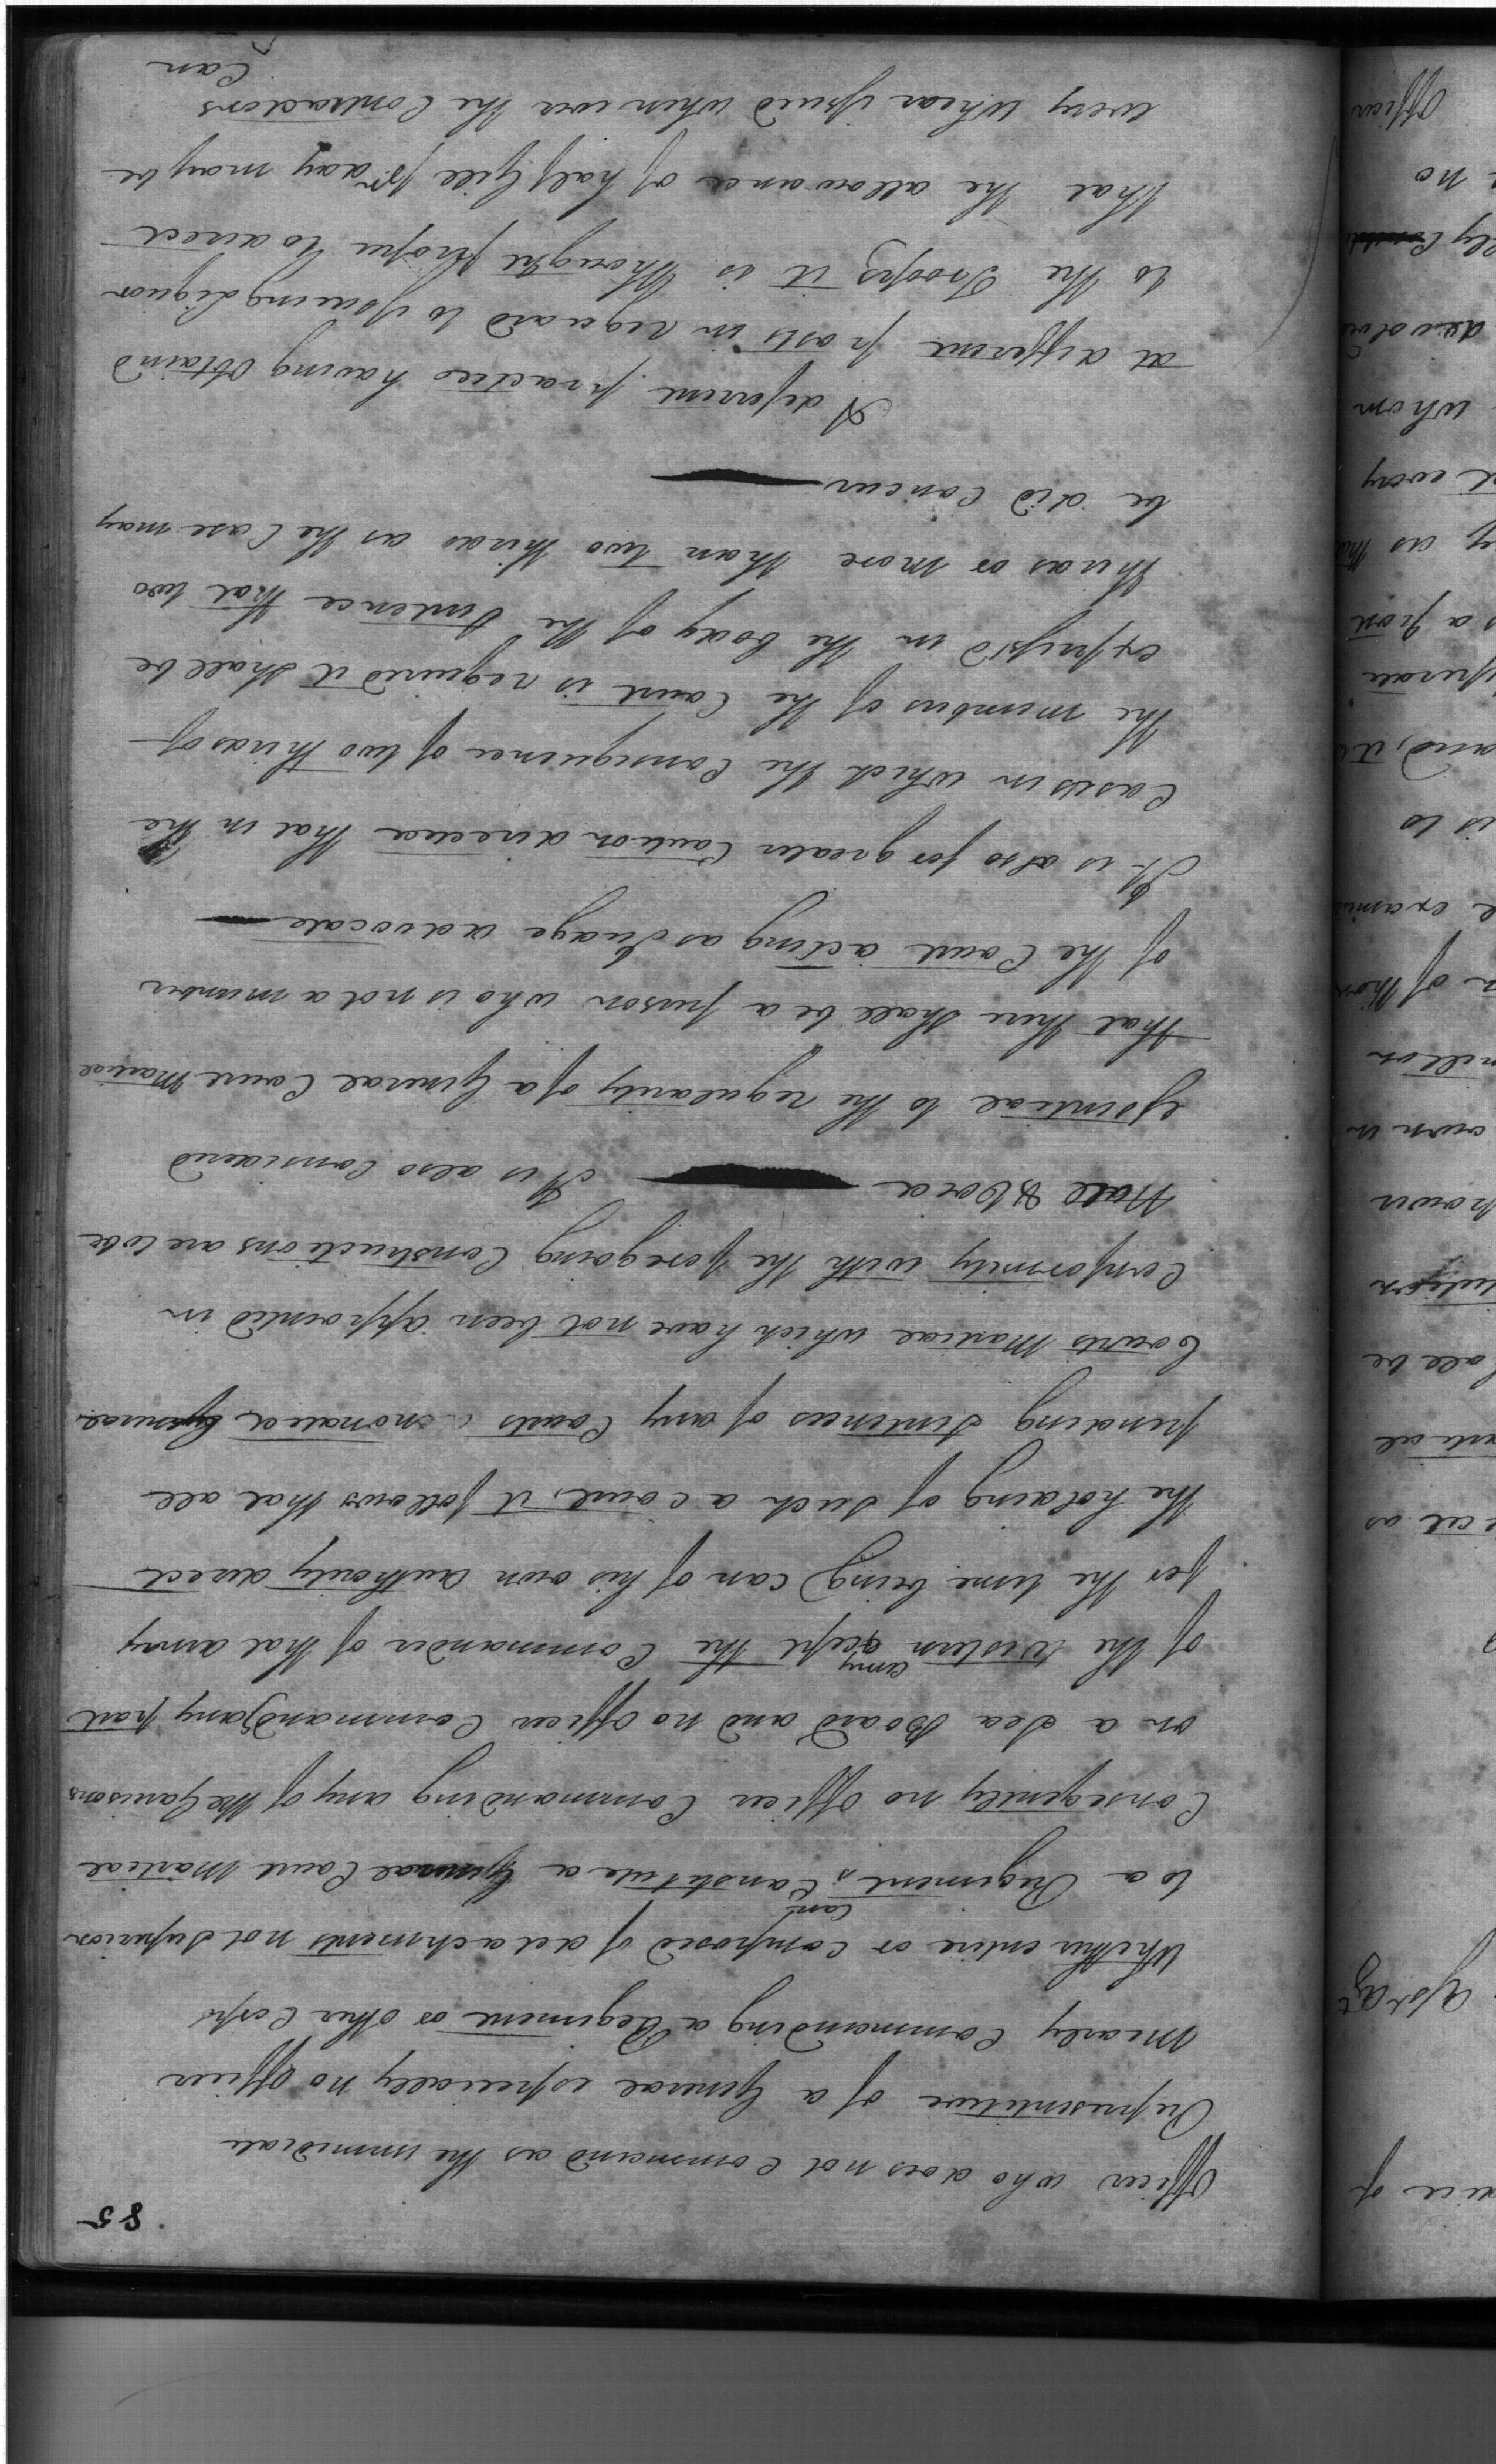 85
Officer who does not Command as the immediate
Representetive of a General especially no officer
Mearly Commanding a Regiment or other Corps
Whether entire or Composed of detachments not Superior
to a Regiment, Can Constitute a General Court Martial
Conseqently no officer Commanding any of the Garrisons
on a Sea Board and no officer Commandg any part
of the Western army except the Commander of that army
for the time being) can of his own authority direct
the holding of Such a Court, it follows that all
pending Sentences of any Courts denonated General
Courts Martial which have not been appointed in
Conformity with the foregoing Constructions are to be
Null & Void It is also Considered
essential to the regularity of a General Court Martial
that there Shall be a person who is not a member
of the Court acting as Judge advocate
It is also for greater Caution directed that in the
Cases in which the Consequence of two thirds of
the members of the Court is required it Shall be
express'd in the body of the Sentence that two
thirds or more than two thirds as the Case may
be did Concur
A deferrent practice having Obtaind
at different posts in reguard to issueing Liquor
to the Troops it is thought proper to direct
that the allowance of half Gill pr day may be
every whear issued when ever the Contractors
Can
Officer
no
whom
every
as
is to
of
own in
power
all be
as
of